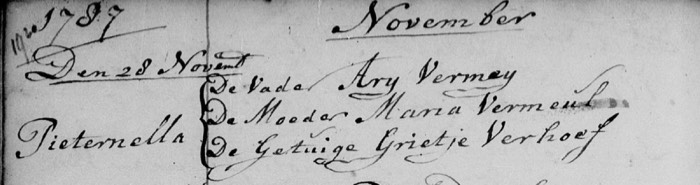 1787 November
Den 28 Novemb
De Vader Ary Vermey
De Moeder Maria Vermeul
Pieternella
De Getuige Grietje Verhoef